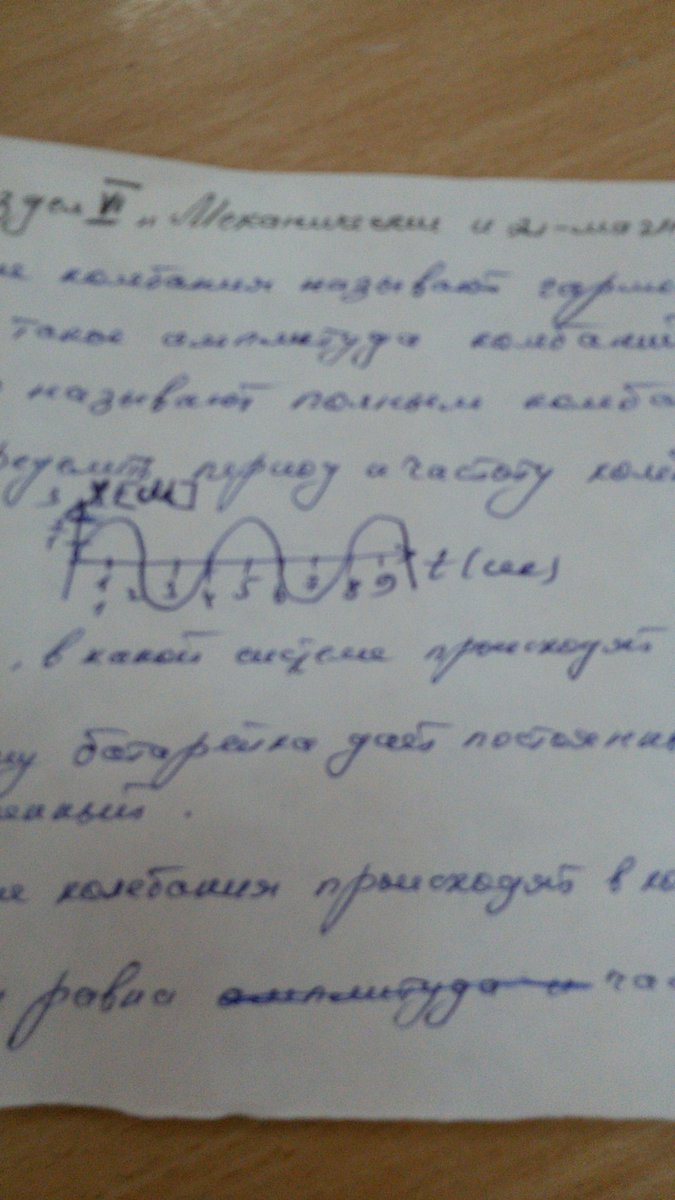 здел VI „Механические и эл-магн
ие колебания называют гармо
такое амплитуда колебаний
называют полным колеба
ределить период и частоту колеб
3 X [см]
2
1
t (сек)
1 2 3 4 5 6 7 8 9
, в какой системе происходят
му батарейка даёт постоянны
енный.
ие колебания происходят в ко
равна амплитуда и час